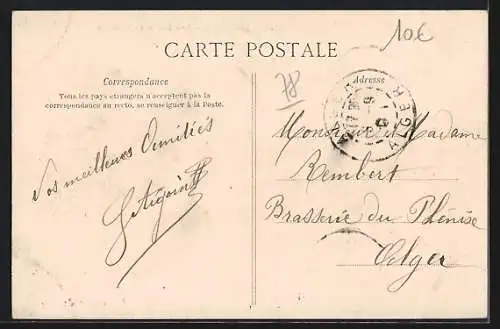 10€
CARTE POSTALE
78
Correspondance
Tous les pays étrangers n'acceptent pas la
correspondance au recto, se renseigner à la Poste.
Adresse
ALGER
Vos meilleures Amitiés
Monsieur et Madame
Rembert
Brasserie du Phénix
Alger